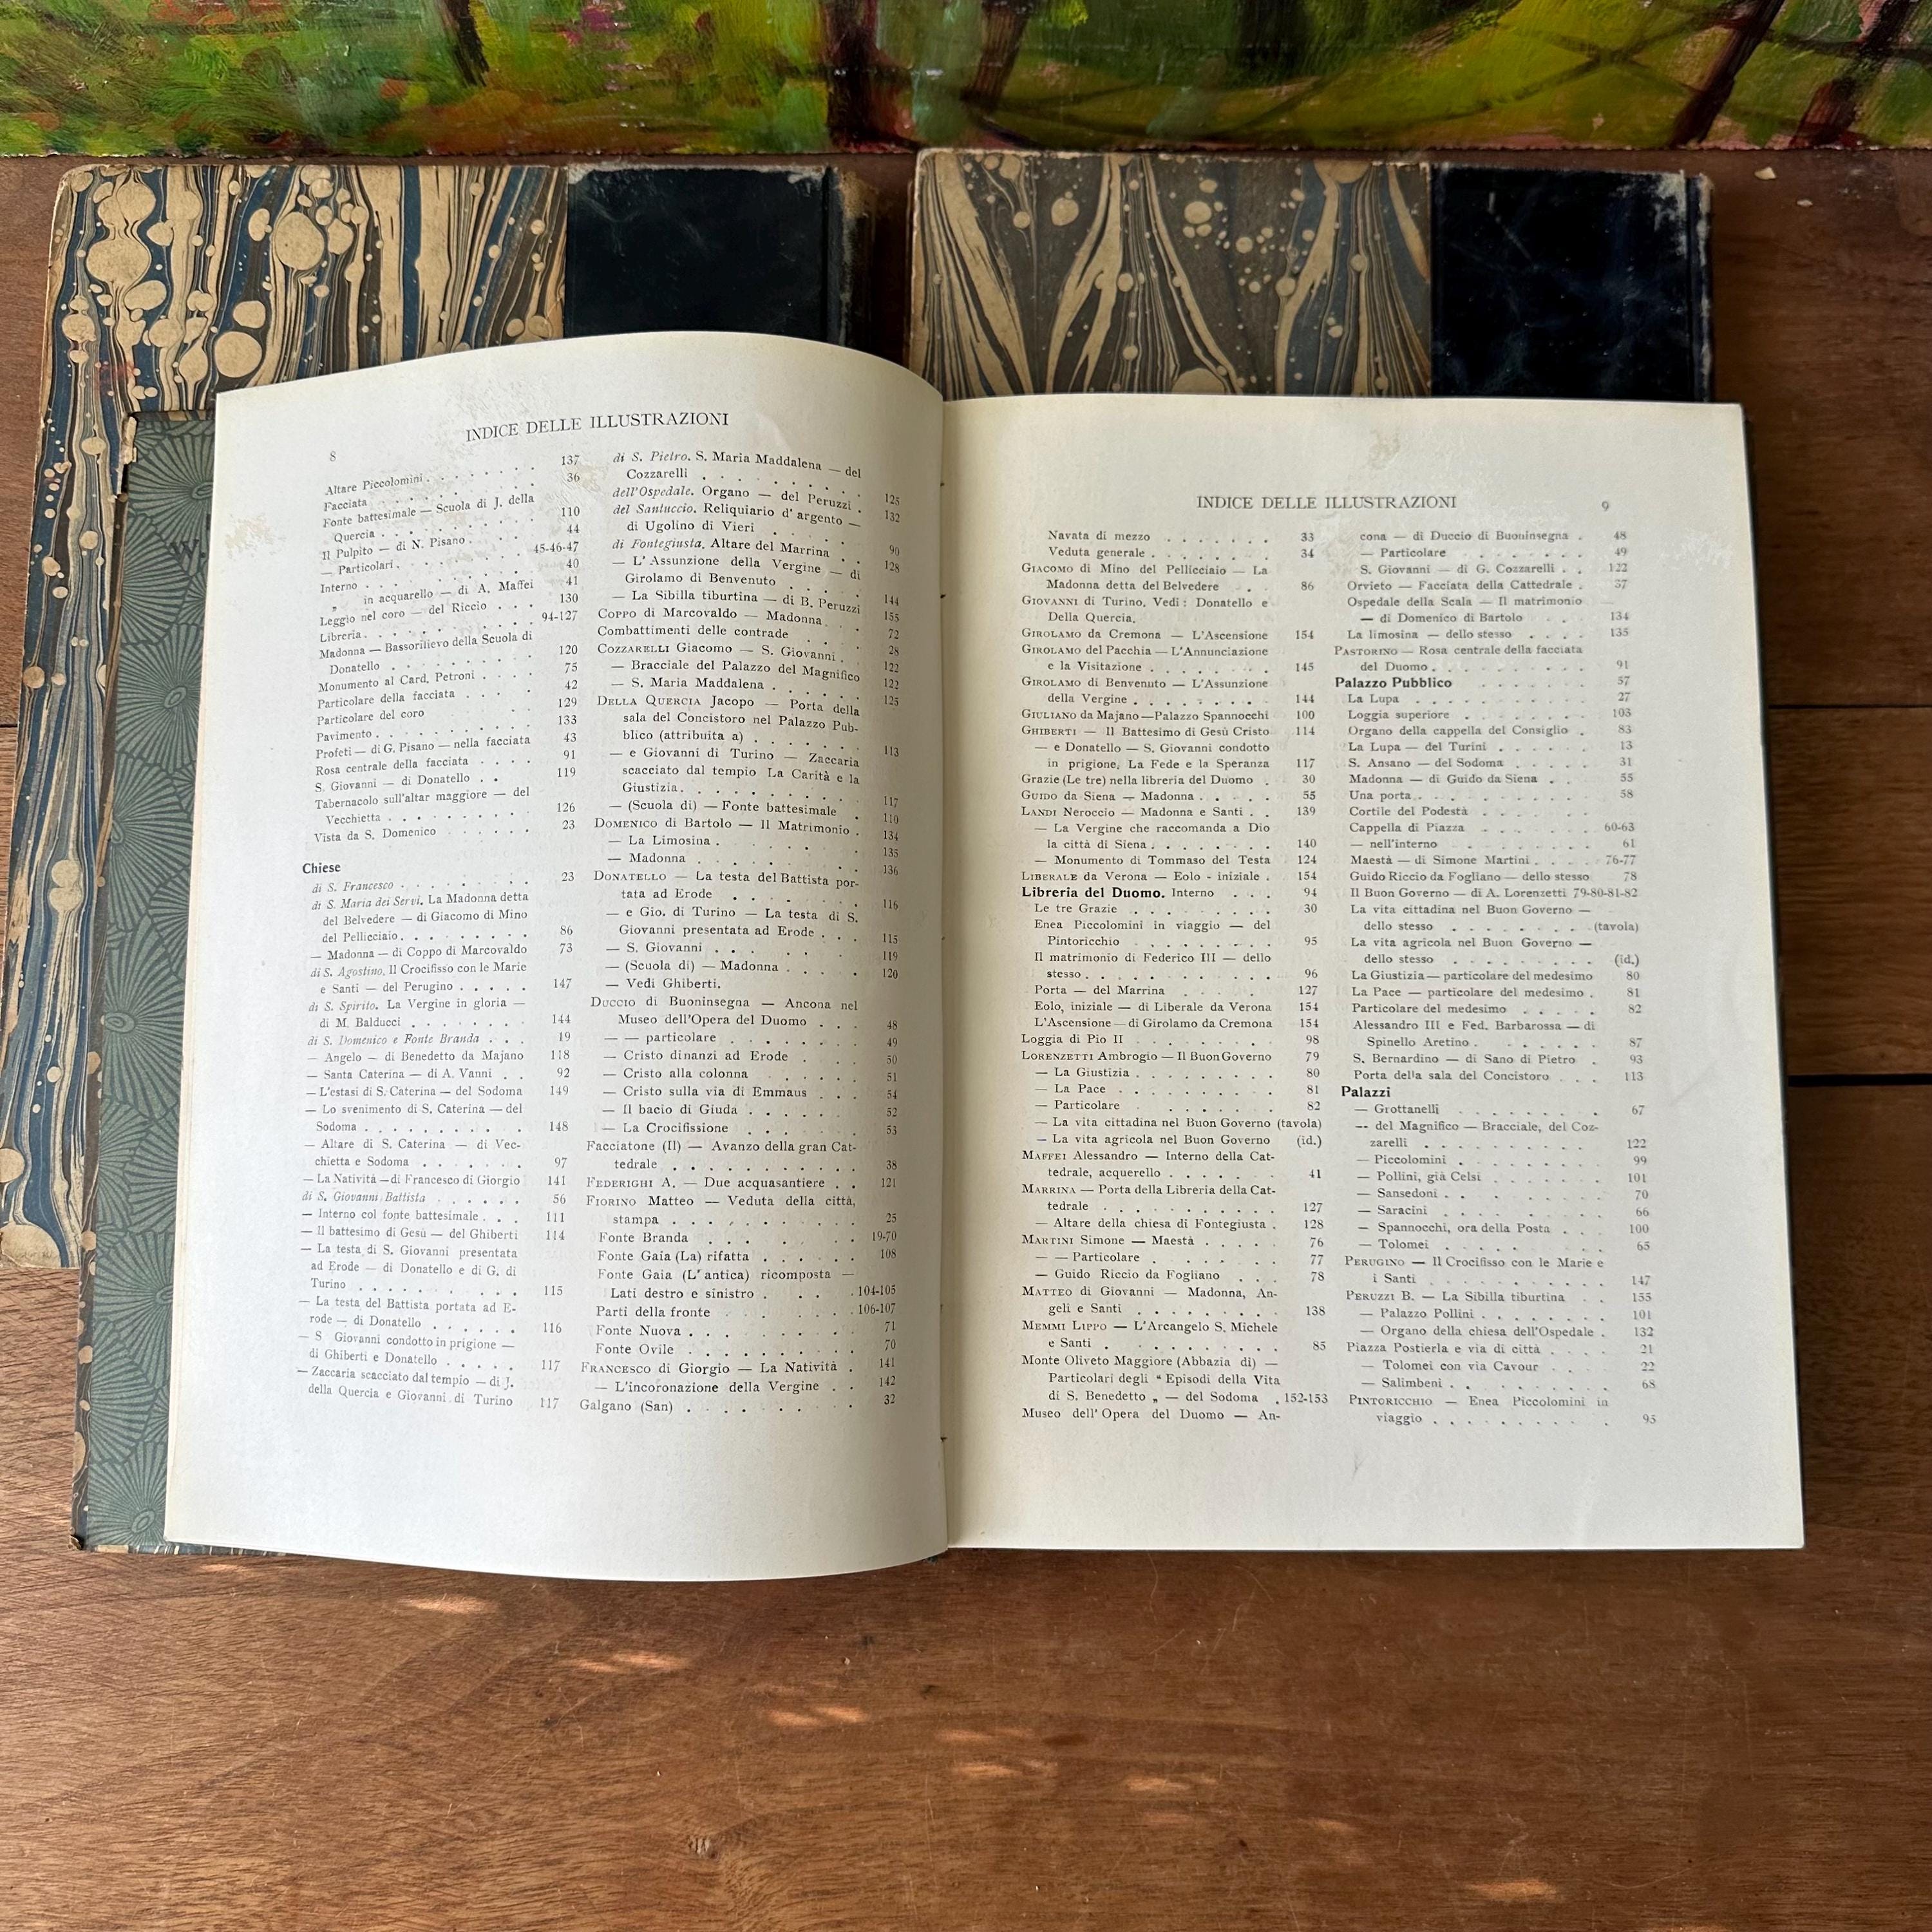 8
INDICE DELLE ILLUSTRAZIONI
Altare Piccolomini . . . . . . . 137
Facciata . . . . . . . . 36
Fonte battesimale — Scuola di J. della
Quercia . . . . . . . . 110
Il Pulpito — di N. Pisano . . . . 44
— Particolari . . . . . . 45-46-47
Interno . . . . . . . . 40
„ in acquarello — di A. Maffei 41
Leggio nel coro — del Riccio . . . 130
Libreria . . . . . . . . 94-127
Madonna — Bassorilievo della Scuola di
Donatello . . . . . . . 120
Monumento al Card. Petroni . . . 75
Particolare della facciata . . . . 42
Particolare del coro . . . . . 129
Pavimento . . . . . . . 133
Profeti — di G. Pisano — nella facciata 43
Rosa centrale della facciata . . . . 91
S. Giovanni — di Donatello . . . . 119
Tabernacolo sull'altar maggiore — del
Vecchietta . . . . . . . 126
Vista da S. Domenico . . . . . 23
Chiese
di S. Francesco . . . . . . . 23
di S. Maria dei Servi. La Madonna detta
del Belvedere — di Giacomo di Mino
del Pellicciaio . . . . . . . 86
— Madonna — di Coppo di Marcovaldo 73
di S. Agostino. Il Crocifisso con le Marie
e Santi — del Perugino . . . . . 147
di S. Spirito. La Vergine in gloria —
di M. Balducci . . . . . . . 144
di S. Domenico e Fonte Branda . . . 19
— Angelo — di Benedetto da Majano 118
— Santa Caterina — di A. Vanni . . 92
— L'estasi di S. Caterina — del Sodoma 149
— Lo svenimento di S. Caterina — del
Sodoma . . . . . . . . 148
— Altare di S. Caterina — di Vec-
chietta e Sodoma . . . . . . 97
— La Natività — di Francesco di Giorgio 141
di S. Giovanni Battista . . . . . . 56
— Interno col fonte battesimale . . . 111
— Il battesimo di Gesù — del Ghiberti 114
— La testa di S. Giovanni presentata
ad Erode — di Donatello e di G. di
Turino . . . . . . . . 115
— La testa del Battista portata ad E-
rode — di Donatello . . . . . . 116
— S Giovanni condotto in prigione —
di Ghiberti e Donatello . . . . . 117
— Zaccaria scacciato dal tempio — di J.
della Quercia e Giovanni di Turino 117
di S. Pietro. S. Maria Maddalena — del
Cozzarelli . . . . . . . . 125
dell'Ospedale. Organo — del Peruzzi . 132
del Santuccio. Reliquiario d'argento —
di Ugolino di Vieri . . . . . 90
di Fontegiusta. Altare del Marrina . . 128
— L'Assunzione della Vergine — di
Girolamo di Benvenuto . . . . 144
— La Sibilla tiburtina — di B. Peruzzi 155
COPPO di Marcovaldo — Madonna . . 72
Combattimenti delle contrade . . . 28
COZZARELLI Giacomo — S. Giovanni . 122
— Bracciale del Palazzo del Magnifico 122
— S. Maria Maddalena . . . . . 125
DELLA QUERCIA Jacopo — Porta della
sala del Concistoro nel Palazzo Pub-
blico (attribuita a) . . . . . . 113
— e Giovanni di Turino — Zaccaria
scacciato dal tempio La Carità e la
Giustizia . . . . . . . . 117
— (Scuola di) — Fonte battesimale . 110
DOMENICO di Bartolo — Il Matrimonio . 134
— La Limosina . . . . . . . 135
— Madonna . . . . . . . . 136
DONATELLO — La testa del Battista por-
tata ad Erode . . . . . . . 116
— e Gio. di Turino — La testa di S.
Giovanni presentata ad Erode . . . 115
— S. Giovanni . . . . . . . 119
— (Scuola di) — Madonna . . . . 120
— Vedi Ghiberti.
DUCCIO di Buoninsegna — Ancona nel
Museo dell'Opera del Duomo . . . 48
— — particolare . . . . . . . 49
— Cristo dinanzi ad Erode . . . . 50
— Cristo alla colonna . . . . . . 51
— Cristo sulla via di Emmaus . . . 54
— Il bacio di Giuda . . . . . . 52
— La Crocifissione . . . . . . 53
Facciatone (Il) — Avanzo della gran Cat-
tedrale . . . . . . . . . 38
FEDERIGHI A. — Due acquasantiere . . 121
FIORINO Matteo — Veduta della città,
stampa . . . . . . . . . 25
Fonte Branda . . . . . . . 19-70
Fonte Gaia (La) rifatta . . . . . . 108
Fonte Gaia (L'antica) ricomposta —
Lati destro e sinistro . . . . 104-105
Parti della fronte . . . . . . 106-107
Fonte Nuova . . . . . . . . . 71
Fonte Ovile . . . . . . . . . 70
FRANCESCO di Giorgio — La Natività . 141
— L'incoronazione della Vergine . . 142
Galgano (San) . . . . . . . . . 32
INDICE DELLE ILLUSTRAZIONI
9
Navata di mezzo . . . . . . . 33
Veduta generale . . . . . . . 34
GIACOMO di Mino del Pellicciaio — La
Madonna detta del Belvedere . . 86
GIOVANNI di Turino. Vedi: Donatello e
Della Quercia.
GIROLAMO da Cremona — L'Ascensione 154
GIROLAMO del Pacchia — L'Annunciazione
e la Visitazione . . . . . . . 145
GIROLAMO di Benvenuto — L'Assunzione
della Vergine . . . . . . . . 144
GIULIANO da Majano — Palazzo Spannocchi 100
GHIBERTI — Il Battesimo di Gesù Cristo 114
— e Donatello — S. Giovanni condotto
in prigione. La Fede e la Speranza 117
Grazie (Le tre) nella libreria del Duomo . 30
GUIDO da Siena — Madonna . . . . . 55
LANDI Neroccio — Madonna e Santi . . 139
— La Vergine che raccomanda a Dio
la città di Siena . . . . . . . 140
— Monumento di Tommaso del Testa 124
LIBERALE da Verona — Eolo - iniziale . 154
Libreria del Duomo. Interno . . . 94
Le tre Grazie . . . . . . . . 30
Enea Piccolomini in viaggio — del
Pintoricchio . . . . . . . 95
Il matrimonio di Federico III — dello
stesso . . . . . . . . . . 96
Porta — del Marrina . . . . 127
Eolo, iniziale — di Liberale da Verona 154
L'Ascensione — di Girolamo da Cremona 154
Loggia di Pio II . . . . . . . . 98
LORENZETTI Ambrogio — Il Buon Governo 79
— La Giustizia . . . . . . . . 80
— La Pace . . . . . . . . . 81
— Particolare . . . . . . . 82
— La vita cittadina nel Buon Governo (tavola)
— La vita agricola nel Buon Governo (id.)
MAFFEI Alessandro — Interno della Cat-
tedrale, acquerello . . . . . . . 41
MARRINA — Porta della Libreria della Cat-
tedrale . . . . . . . . . . 127
— Altare della chiesa di Fontegiusta . 128
MARTINI Simone — Maestà . . . . . 76
— — Particolare . . . . . . 77
— Guido Riccio da Fogliano . . . 78
MATTEO di Giovanni — Madonna, An-
geli e Santi . . . . . . . . 138
MEMMI LIPPO — L'Arcangelo S. Michele
e Santi . . . . . . . . . 85
Monte Oliveto Maggiore (Abbazia di) —
Particolari degli “ Episodi della Vita
di S. Benedetto „ — del Sodoma . 152-153
Museo dell'Opera del Duomo — An-
cona — di Duccio di Buoninsegna . 48
— Particolare . . . . . . . 49
S. Giovanni — di G. Cozzarelli . . 122
Orvieto — Facciata della Cattedrale . 37
Ospedale della Scala — Il matrimonio
— di Domenico di Bartolo . . 134
La limosina — dello stesso . . . . 135
PASTORINO — Rosa centrale della facciata
del Duomo . . . . . . . . 91
Palazzo Pubblico . . . . . . . 57
La Lupa . . . . . . . . . 27
Loggia superiore . . . . . . . 103
Organo della cappella del Consiglio . 83
La Lupa — del Turini . . . . . 13
S. Ansano — del Sodoma . . . . 31
Madonna — di Guido da Siena . . 55
Una porta . . . . . . . . . 58
Cortile del Podestà . . . . . . .
Cappella di Piazza . . . . . . 60-63
— nell'interno . . . . . . . 61
Maestà — di Simone Martini . . . . 76-77
Guido Riccio da Fogliano — dello stesso 78
Il Buon Governo — di A. Lorenzetti 79-80-81-82
La vita cittadina nel Buon Governo —
dello stesso . . . . . . . (tavola)
La vita agricola nel Buon Governo —
dello stesso . . . . . . . . (id.)
La Giustizia — particolare del medesimo 80
La Pace — particolare del medesimo . 81
Particolare del medesimo . . . . . 82
Alessandro III e Fed. Barbarossa — di
Spinello Aretino . . . . . . . 87
S. Bernardino — di Sano di Pietro . 93
Porta della sala del Concistoro . . . 113
Palazzi
— Grottanelli . . . . . . . . 67
— del Magnifico — Bracciale, del Coz-
zarelli . . . . . . . . . . 122
— Piccolomini . . . . . . . . 99
— Pollini, già Celsi . . . . . . . 101
— Sansedoni . . . . . . . . 70
— Saracini . . . . . . . . . 66
— Spannocchi, ora della Posta . . . 100
— Tolomei . . . . . . . . . 65
PERUGINO — Il Crocifisso con le Marie e
i Santi . . . . . . . . . . 147
PERUZZI B. — La Sibilla tiburtina . . 155
— Palazzo Pollini . . . . . . . 101
— Organo della chiesa dell'Ospedale . 132
Piazza Postierla e via di città . . . . 21
— Tolomei con via Cavour . . . . 22
— Salimbeni . . . . . . . . . 68
PINTORICCHIO — Enea Piccolomini in
viaggio . . . . . . . . . 95